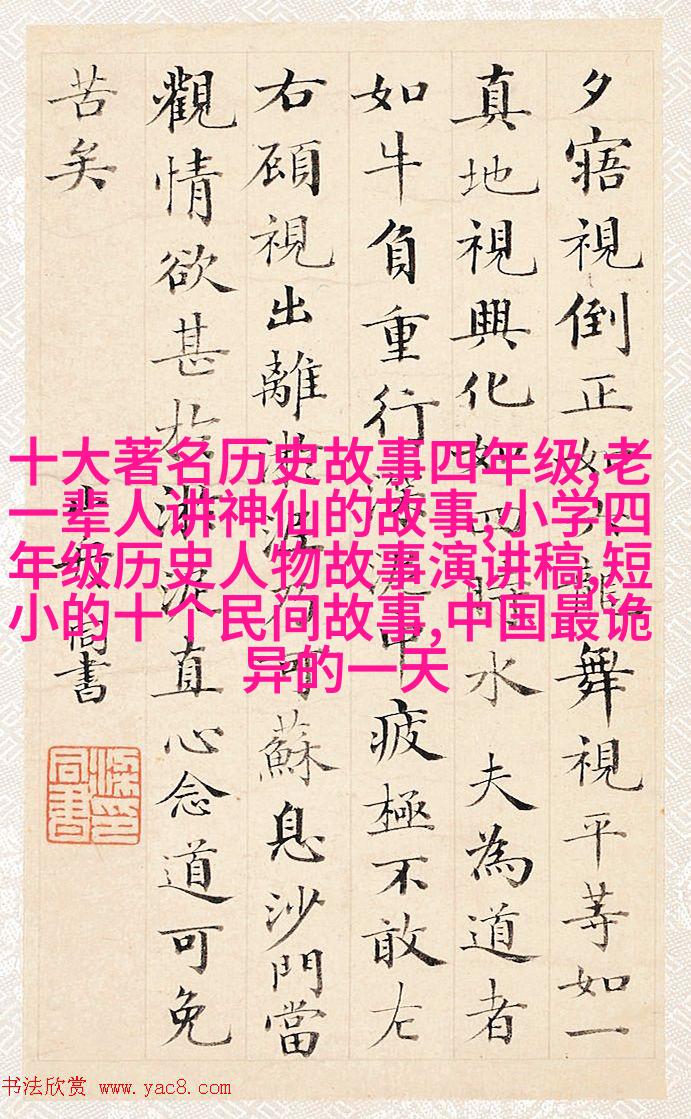 夕寤視倒正如六龍舞視平等如一
真地視興化如四時水 夫為道者
如牛負重行深泥中疲極不敢左
右顧視出離淤泥乃可蘇息沙門當
觀情欲甚於淤泥直心念道可免
苦矣
同書
十大著名历史故事四年级,老
一辈人讲神仙的故事,小学四
年级历史人物故事演讲稿,短
小的十个民间故事,中国最诡
异的一天
书法欣赏 www.yac8.com